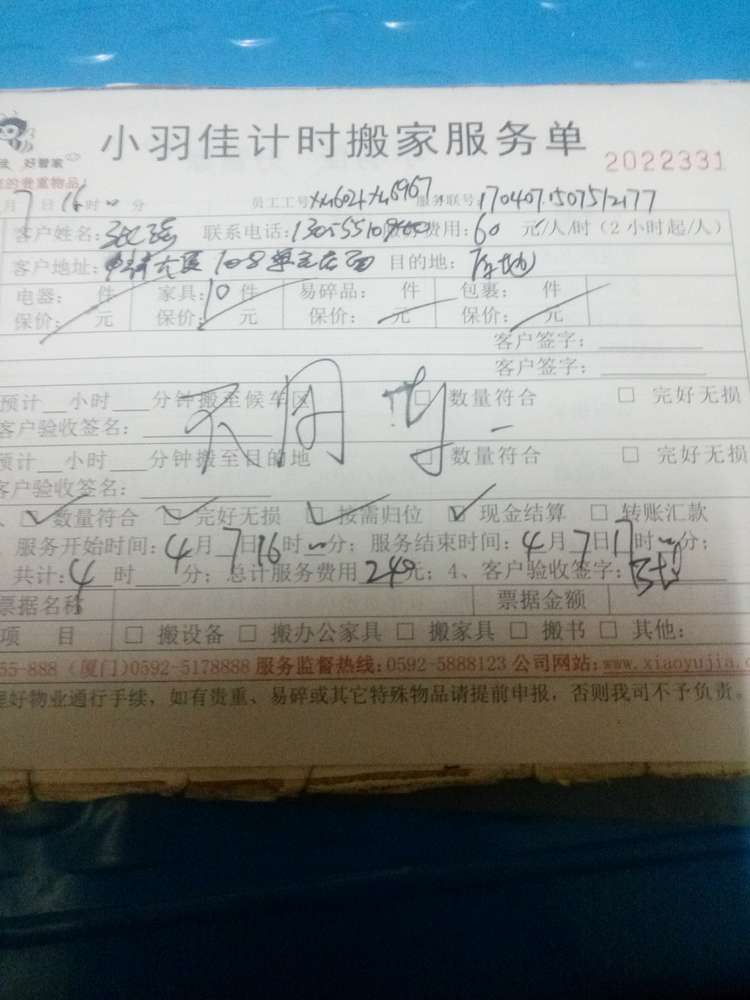 好管家
小羽佳计时搬家服务单 2022331
的贵重物品
月7日16时00分 员工工号 服务联号:170407150751277
客户姓名: 联系电话: 费用:60元/人/时(2小时起/人)
客户地址: 目的地:
电器: 件 家具:10件 易碎品: 件 包裹: 件
保价: 元 保价: 元 保价: 元 保价: 元
客户签字:
客户签字:
预计 小时 分钟搬至候车区 □ 数量符合 □ 完好无损
客户验收签名:
预计 小时 分钟搬至目的地 □ 数量符合 □ 完好无损
客户验收签名:
☑ 数量符合 ☑ 完好无损 ☑ 按需归位 ☑ 现金结算 □ 转账汇款
服务开始时间:4月7日16时00分;服务结束时间:4月7日17时00分;
共计:4时 分;总计服务费用240元;4、客户验收签字:
票据名称 票据金额
项 目 □ 搬设备 □ 搬办公家具 □ 搬家具 □ 搬书 □ 其他:
55-888 (厦门)0592-5178888 服务监督热线:0592-5888123 公司网站:www.xiaoyujia.c
理好物业通行手续,如有贵重、易碎或其它特殊物品请提前申报,否则我司不予负责。